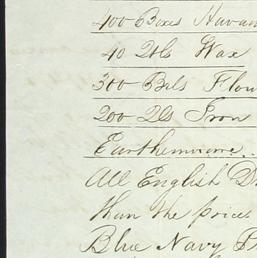 400 Boxes Havan
40 Qtls Wax
300 Bbls Flou
200 Qtls Iron
Earthenware..
All English D
than the prices
Blue Navy P